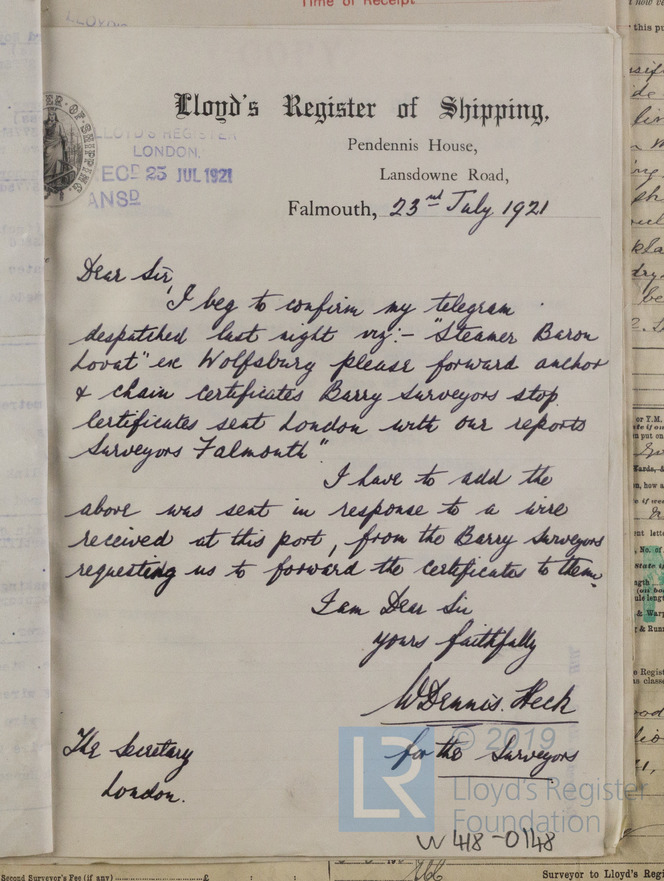 Time of Receipt
Lloyd's Register of Shipping,
Pendennis House,
Lansdowne Road,
Falmouth, 23nd July 1921
LLOYD'S REGISTER
LONDON.
RECD 25 JUL 1921
ANSD
Dear Sir,
I beg to confirm my telegram
despatched last night viz:- "Steamer Baron
Lovat" ex Wolfsburg please forward anchor
& chain certificates Barry Surveyors stop
certificates sent London with our reports
Surveyors Falmouth"
I have to add the
above was sent in response to a wire
received at this port, from the Barry Surveyors
requesting us to forward the certificates to them.
I am Dear Sir
yours faithfully
W Dennis. Heck
for the Surveyors
The Secretary
London.
© 2019
LR
Lloyd's Register
Foundation
W418-0148
Second Surveyor's Fee (if any) £
Surveyor to Lloyd's Regi